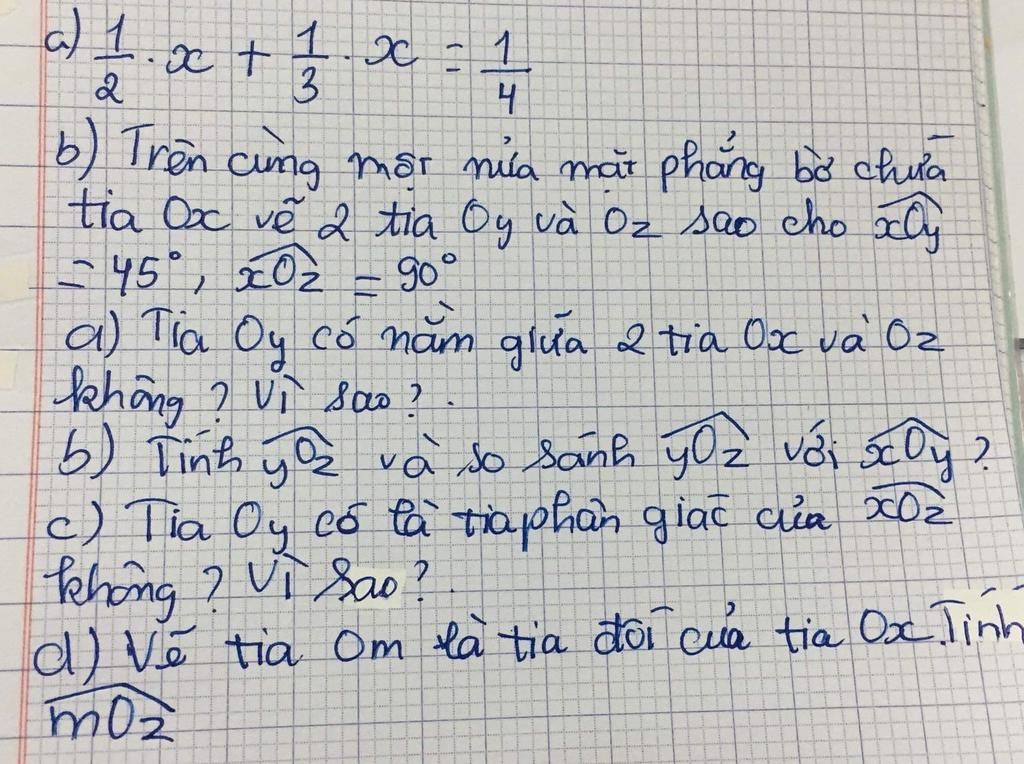 a) 1/2 . x + 1/3 . x = 1/4
b) Trên cùng một nửa mặt phẳng bờ chứa
tia Ox vẽ 2 tia Oy và Oz sao cho \widehat{xOy}
= 45°, \widehat{xOz} = 90°
a) Tia Oy có nằm giữa 2 tia Ox và Oz
không? Vì sao?.
b) Tính \widehat{yOz} và so sánh \widehat{yOz} với \widehat{xOy}?
c) Tia Oy có là tia phân giác của \widehat{xOz}
không? Vì sao?.
d) Vẽ tia Om là tia đối của tia Ox. Tính
\widehat{mOz}